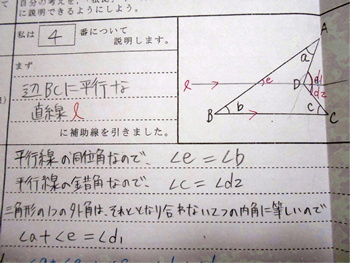 自分の考えを、
に説明できるようにしよう。
私は 4 番について
説明します。
まず、
辺BCに平行な
直線ℓ
に補助線を引きました。
A
a
ℓ
e
D
d1
d2
B
b
c
C
平行線の同位角なので、∠e=∠b
平行線の錯角なので、∠c=∠d2
三角形の1つの外角は、それととなり合わない2つの内角に等しいので
∠a+∠e=∠d1